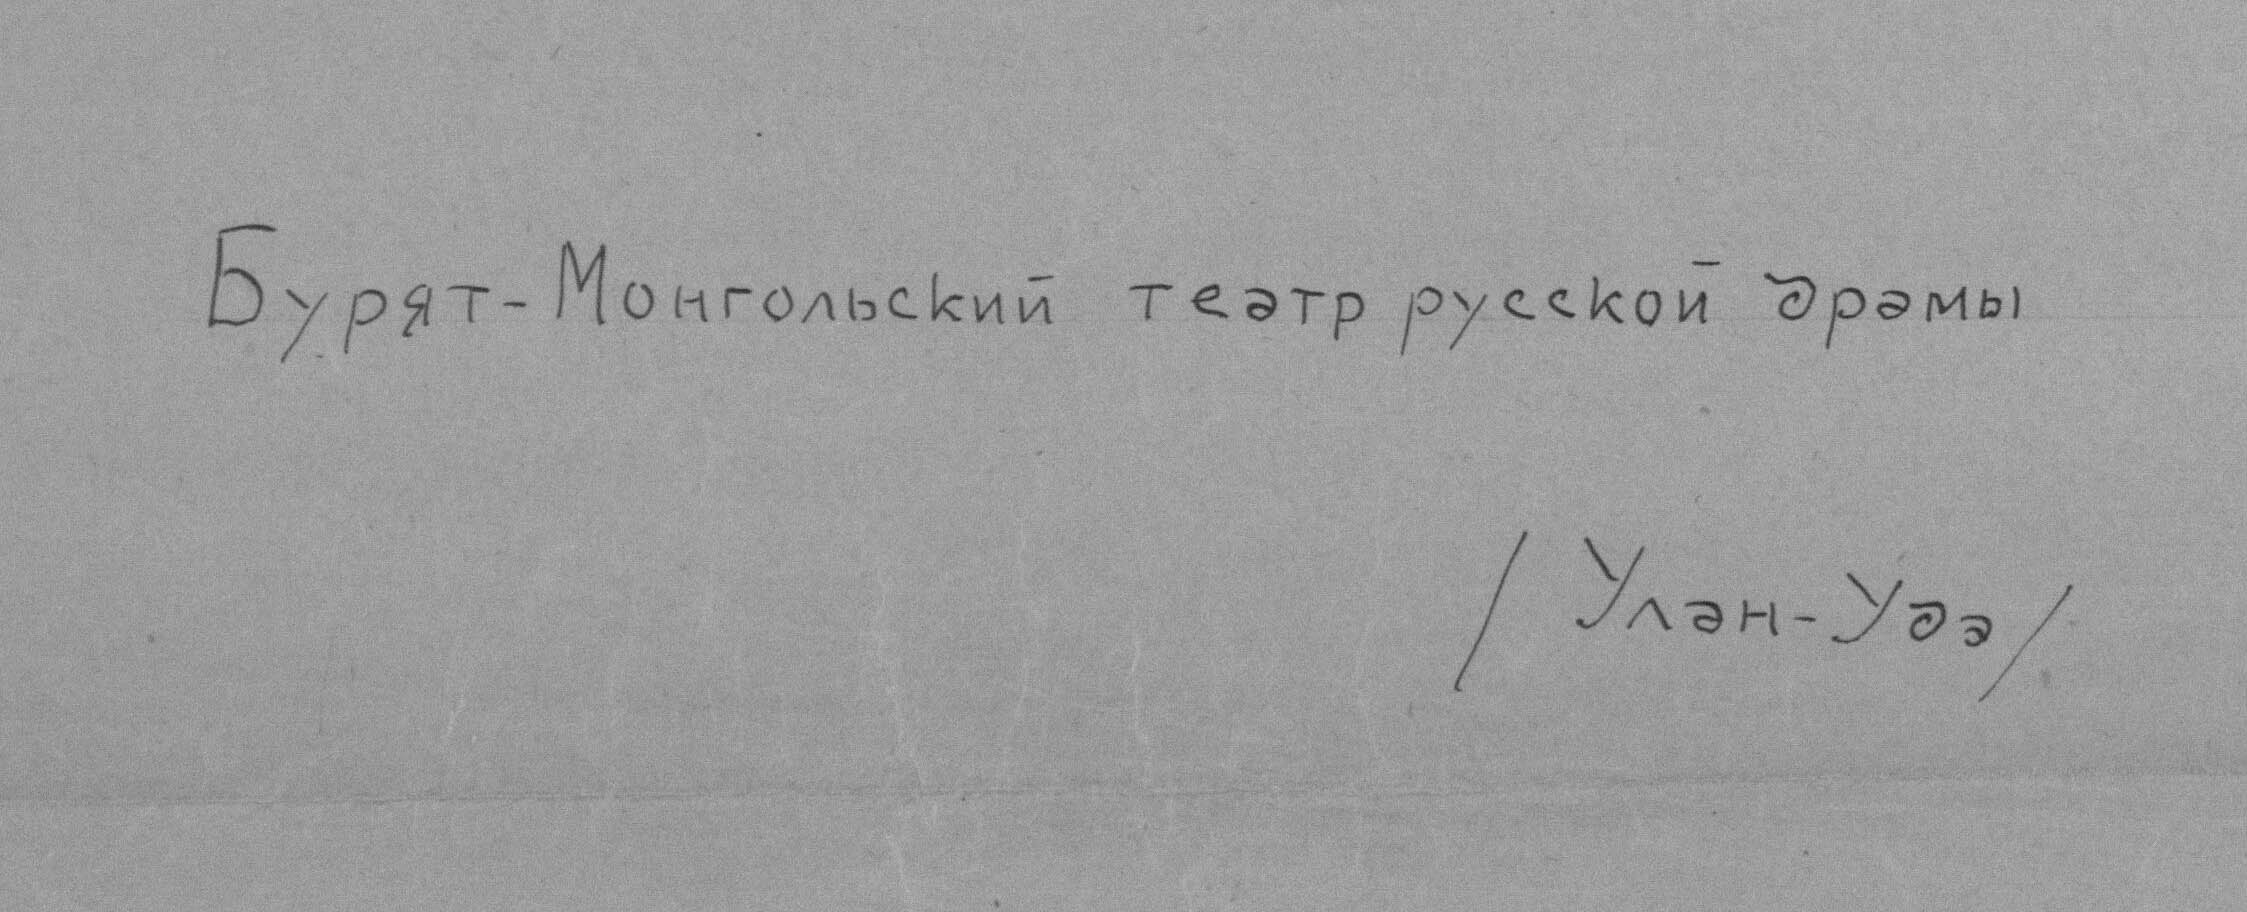 Бурят-Монгольский театр русской драмы
/Улан-Удэ/